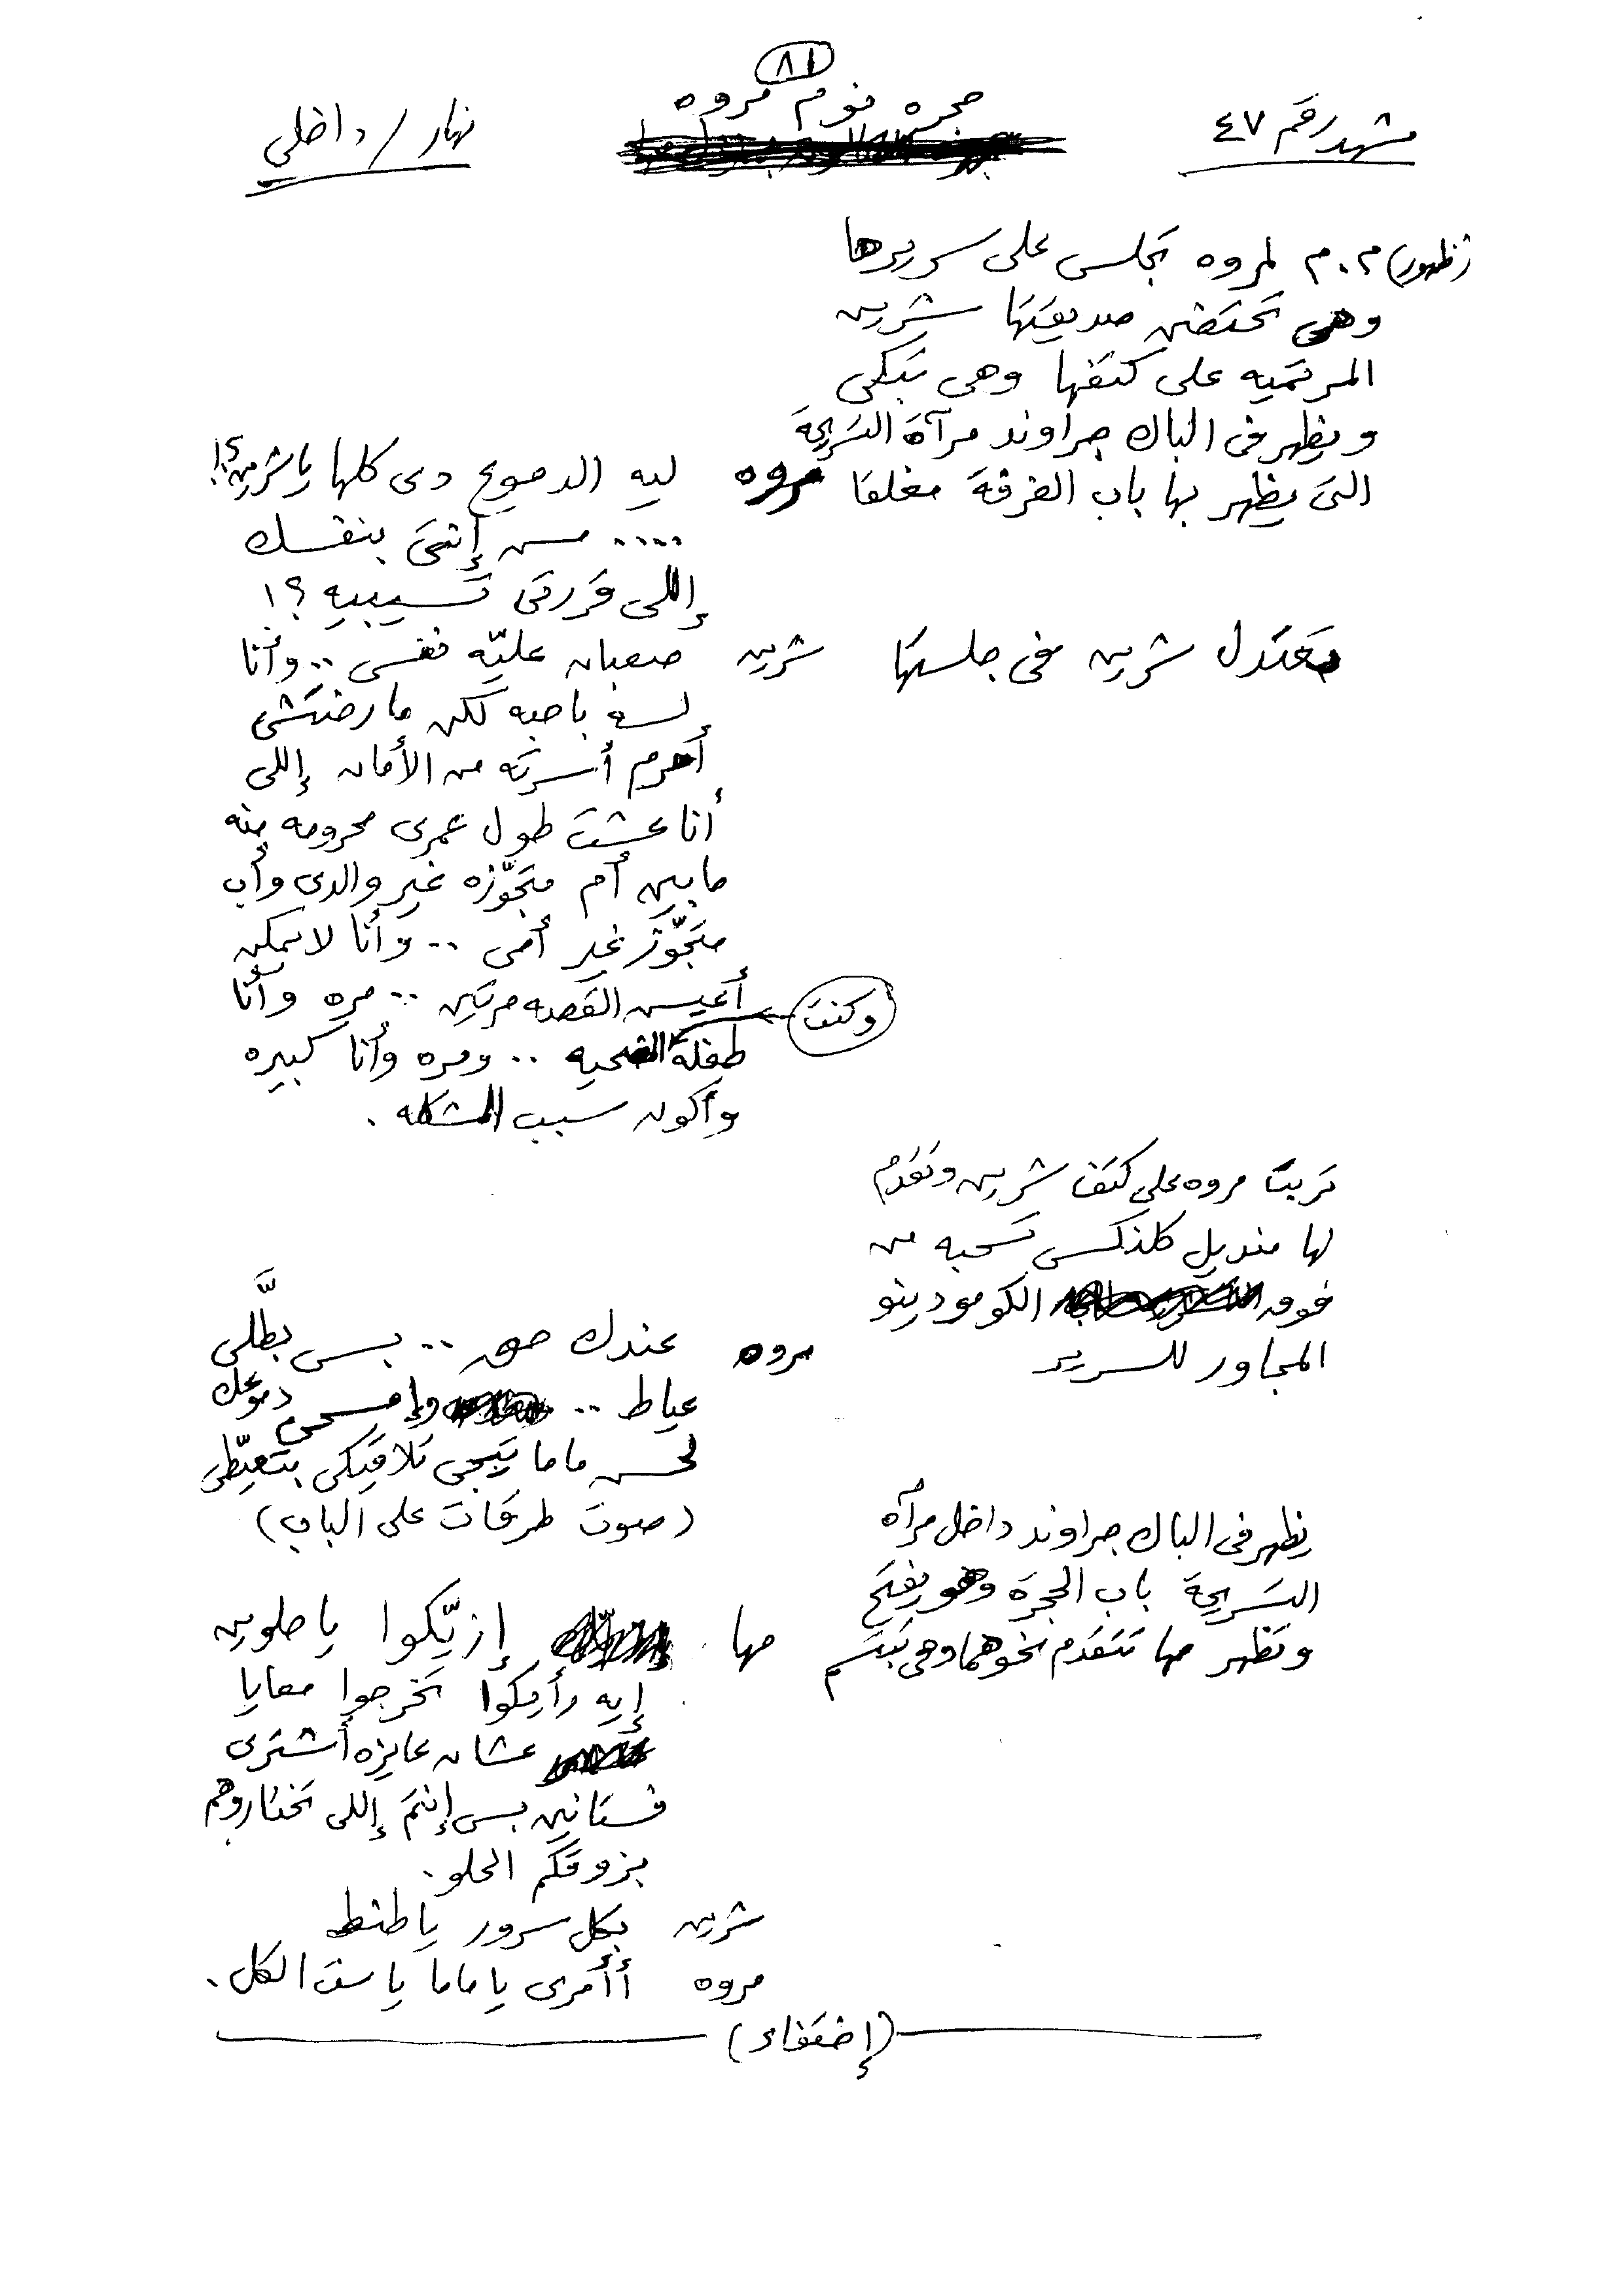 ٨١
مشهد رقم ٤٧
حجره نوم مروه
نهار / داخلي
(ظهور) م.م لمروه تجلس على سريرها
وهى تحتضن صديقتها شرين
المرتميه على كتفها وهى تبكى
ويظهر فى الباك جراوند مرآة التسريحة
التى يظهر بها باب الغرفة مغلقا
مروه ليه الدموع دى كلها يا شرين؟!
.... مس إنتى بنفسك
إللى قررتى تسيبيه ؟!
تعتدل شرين فى جلستها
شرين صعبان عليّه نفسى .. وأنا
لسه باحبه لكن مارضتش
أحرم أسرته من الأمان إللى
أنا عشت طول عمرى محرومه منه
مابين أم متجوّزه غير والدى وأب
متجوّز غير أمى .. وأنا لا يمكن
أعيس القصه مرتين .. مره وأنا
طفلة وكنت الضحيه .. ومره وأنا كبيره
وأكون سبب المشكله .
تربت مروه على كتف شرين وتقدم
لها منديل كلنكس تسحبه من
فوق الكومودينو
المجاور للسرير
مروه عندك حق .. بس بطَّلى
عياط .. وإمسحى دموعك
لحسن ماما تيجى تلاقيكى بتعيّطى
(صوت طرقات على الباب)
يظهر فى الباك جراوند داخل مرآه
التسريحة باب الحجرة وهو يفتح
وتظهر مها تتقدم نحوهما وهى تبتسم
مها إزيّكوا يا حلوين
إيه رأيكوا تخرجوا معايا
عشان عايزه أشترى
فستانين بس إنتم إللى تختاروهم
بزوقكم الحلو .
شرين بكل سرور يا طنط
مروه أأمرى يا ماما يا ست الكل .
(إختفاء)